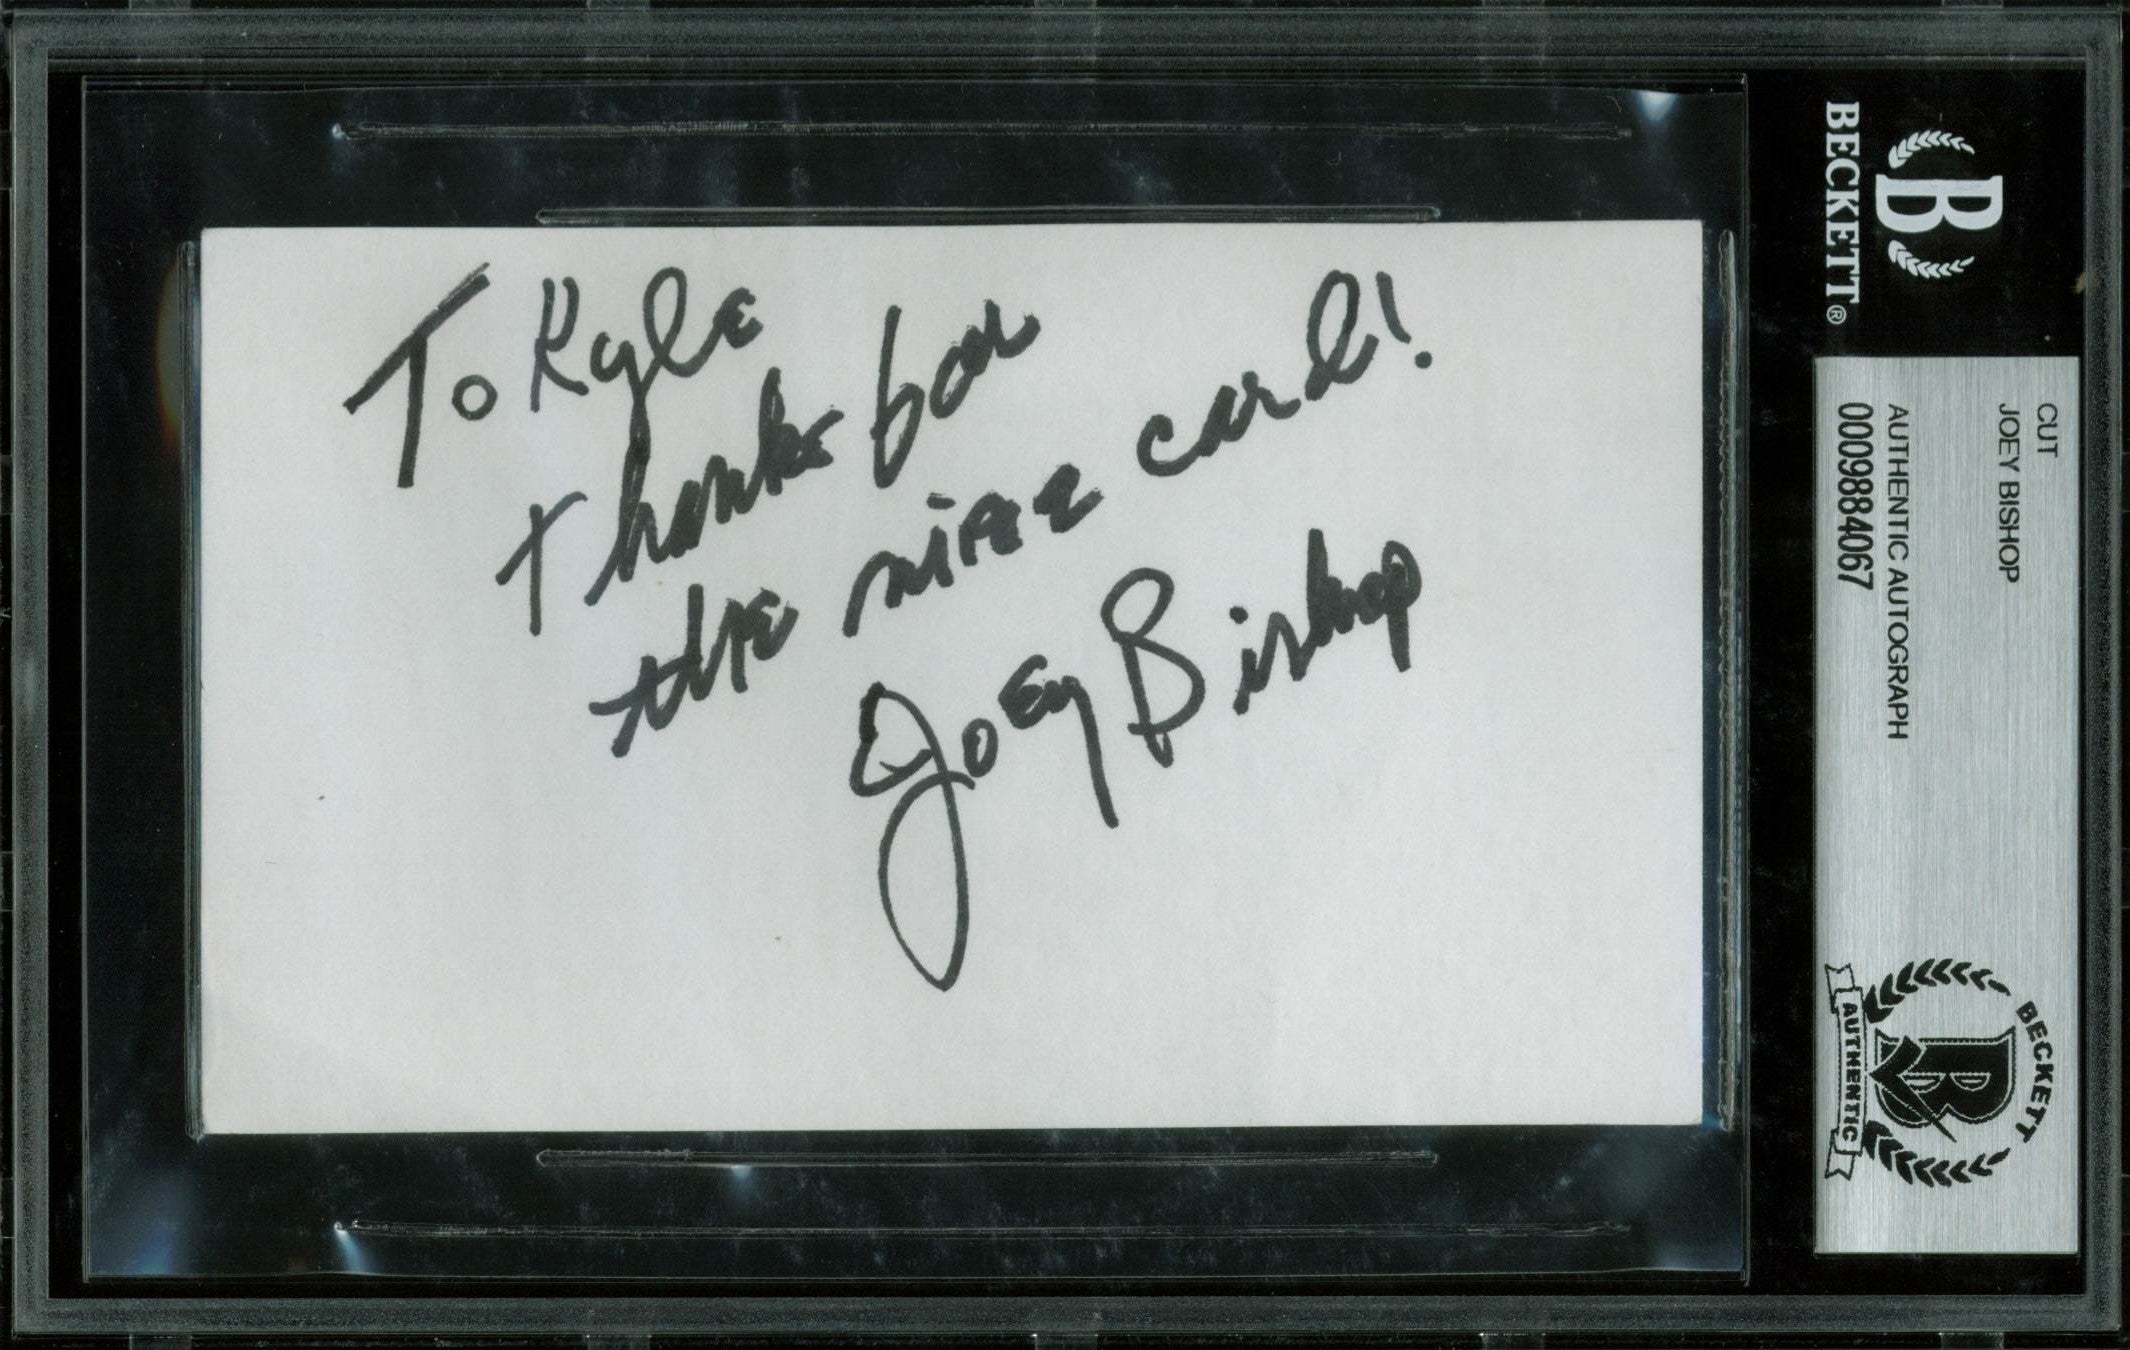 To Kyle
Thanks for
the nice card!
Joey Bishop
B
BECKETT®
CUT
JOEY BISHOP
AUTHENTIC AUTOGRAPH
00009884067
BECKETT
B
AUTHENTIC